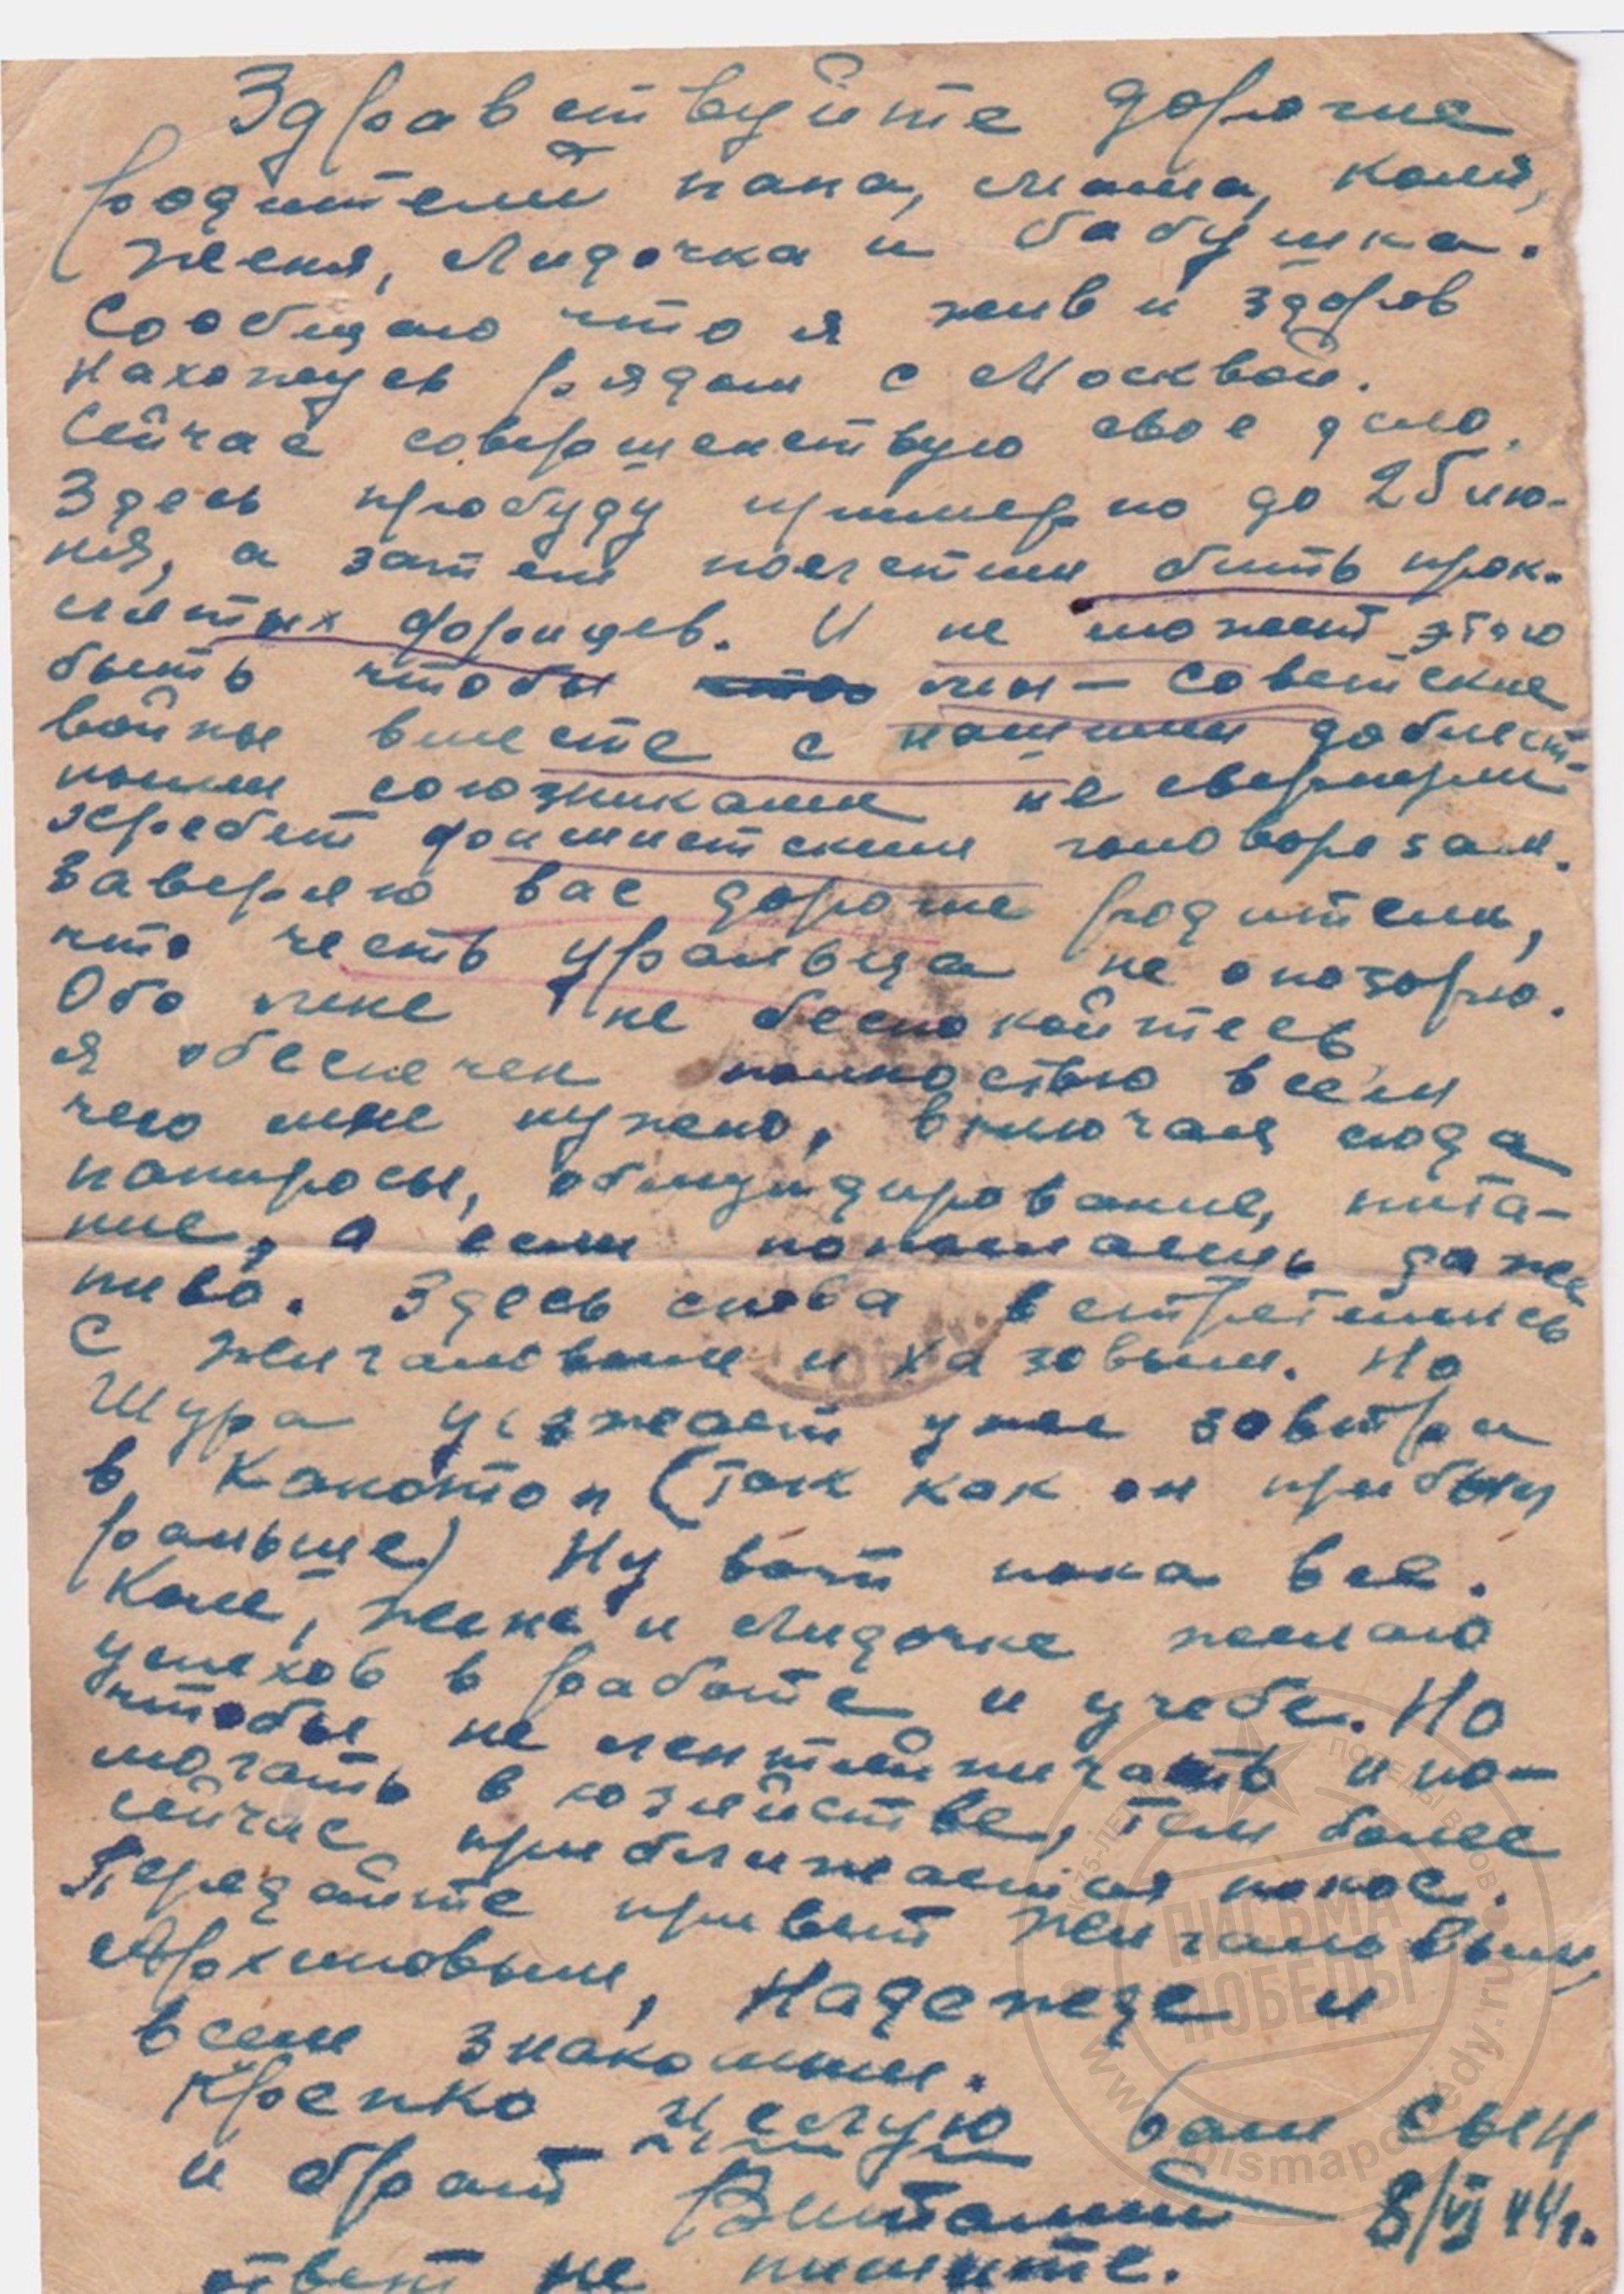 Здравствуйте дорогие
родители папа, мама, Коля,
Женя, Лидочка и бабушка.
Сообщаю что я жив и здоров
Нахожусь рядом с Москвой.
Сейчас совершенствую свое дело.
Здесь пробуду примерно до 25 ию-
ня, а затем полетим бить прок-
лятых фрицев. И не может этого
быть чтобы мы – советские
войны вместе с нашими доблест-
ными союзниками не свернули
хребет фашистским головорезам.
Заверяю вас дорогие родители,
что честь уральца не опозорю.
Обо мне не беспокойтесь,
я обеспечен полностью всем
чего мне нужно, включая сюда
папиросы, обмундирование, пита-
ние, а если поймаешь даже
пиво. Здесь снова встретились
с Жигаловым и Хазовым. Но
Шура уезжает уже завтра
в Конотоп (так как он прибыл
раньше) Ну вот пока все.
Коле, Жене и Лидочке желаю
успехов в работе и учебе. Но
чтобы не лентяйничать и по-
могать в хозяйстве, тем более
сейчас приближается покос.
Передайте привет Жигаловым,
Архиповым, Надежде и
всем знакомым.
Крепко целую ваш сын
и брат Виталий 8/VI 44г.
ответ не пишите.
ПИСЬМА
ПОБЕДЫ
www.pismapobedy.ru